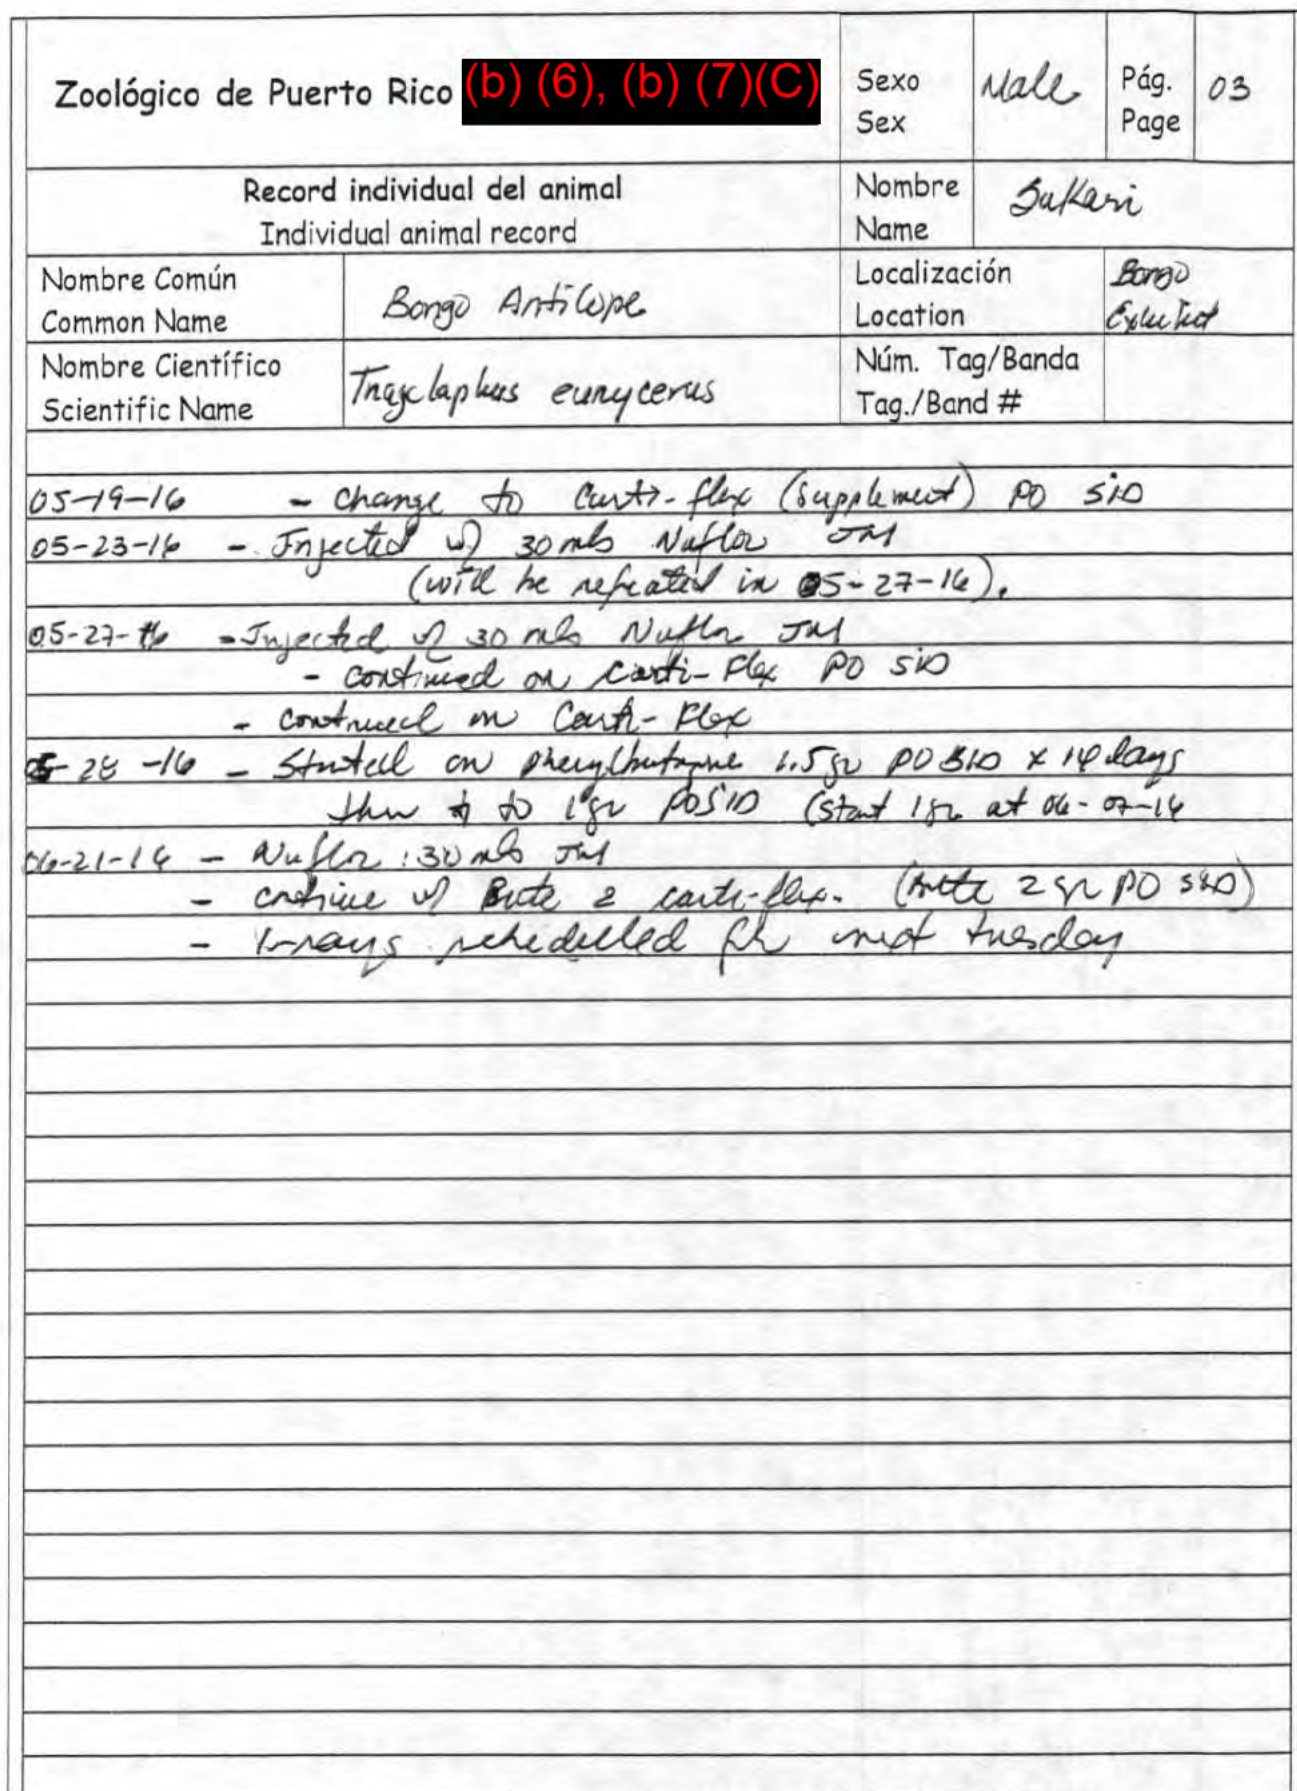 Zoológico de Puerto Rico (b) (6), (b) (7)(C)
Sexo Male Pág. 03
Sex Page
Record individual del animal
Individual animal record
Nombre Sukari
Name
Nombre Común Bongo Antilope
Common Name
Localización Bongo
Location
Nombre Científico eurycerus
Scientific Name
Núm. Tag/Banda
Tag./Band #
05-19-16 - change to Carti-flex (supplement) PO SID
05-23-16 - Injected w/ 30 mls Nuflor IM
(will be repeated in 05-27-16).
05-27-16 - Injected w/ 30 mls Nuflor IM
- continued on Carti-Flex PO SID
- continued on Carti-Flex
05-28-16 - Started on phenylbutazone 1.5 gr PO days
to 1 gr PO SID (start 1 gr at 06-07-16
06-21-16 - Nuflor : 30 mls IM
- continue w/ Bute & carti-flex. (Bute 2 gr PO SID)
- X-rays schedulled for next tuesday